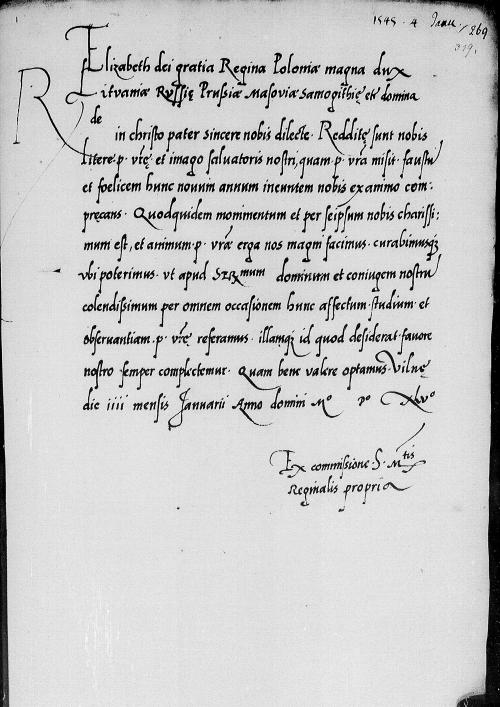 1545 · 4 Janu. / 269
319.
Elizabeth dei gratia Regina Poloniæ magna dux
Litvaniæ Russię Prussiæ Masoviæ Samogithię etc domina
R de
in christo pater sincere nobis dilecte. Redditę sunt nobis
litere p. vrę et imago saluatoris nostri, quam p. vra misit. faustū
et foelicem hunc nouum annum ineuntem nobis ex animo com:
pręcans. Quodquidem monimentum et per seipsum nobis charissi:
mum est, et animum p. vræ erga nos magni facimus. curabimusqꝫ
vbi poterimus. vt apud dominum et coniugem nostrū
colendissimum per omnem occasionem hunc affectum studium et
obseruantiam. p. vrę referamus. illamqꝫ id quod desiderat fauore
nostro semper complectemur. Quam bene valere optamus. Vilnę
die iiii mensis Januarii Anno domini Mº Dº XLvº
Ex commissione S. Mtis
Reginalis propria